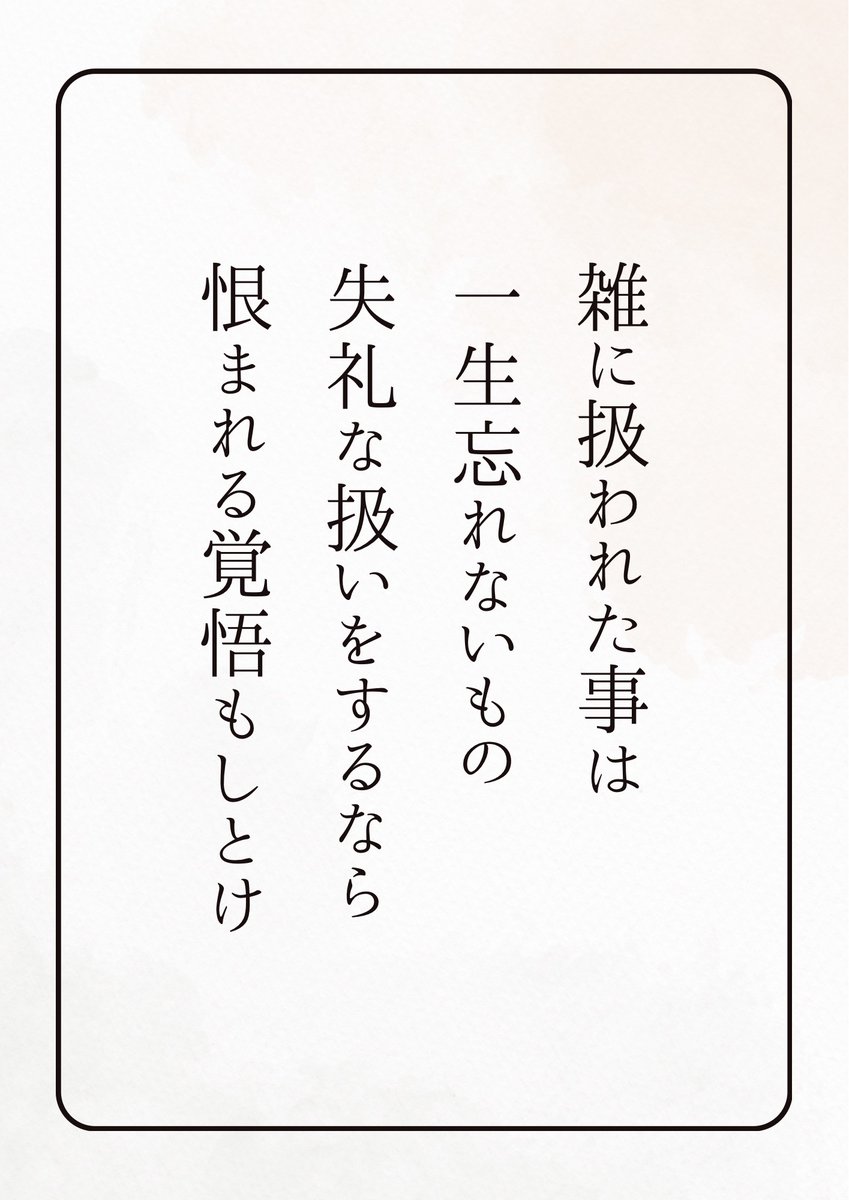 雑に扱われた事は
一生忘れないもの
失礼な扱いをするなら
恨まれる覚悟もしとけ